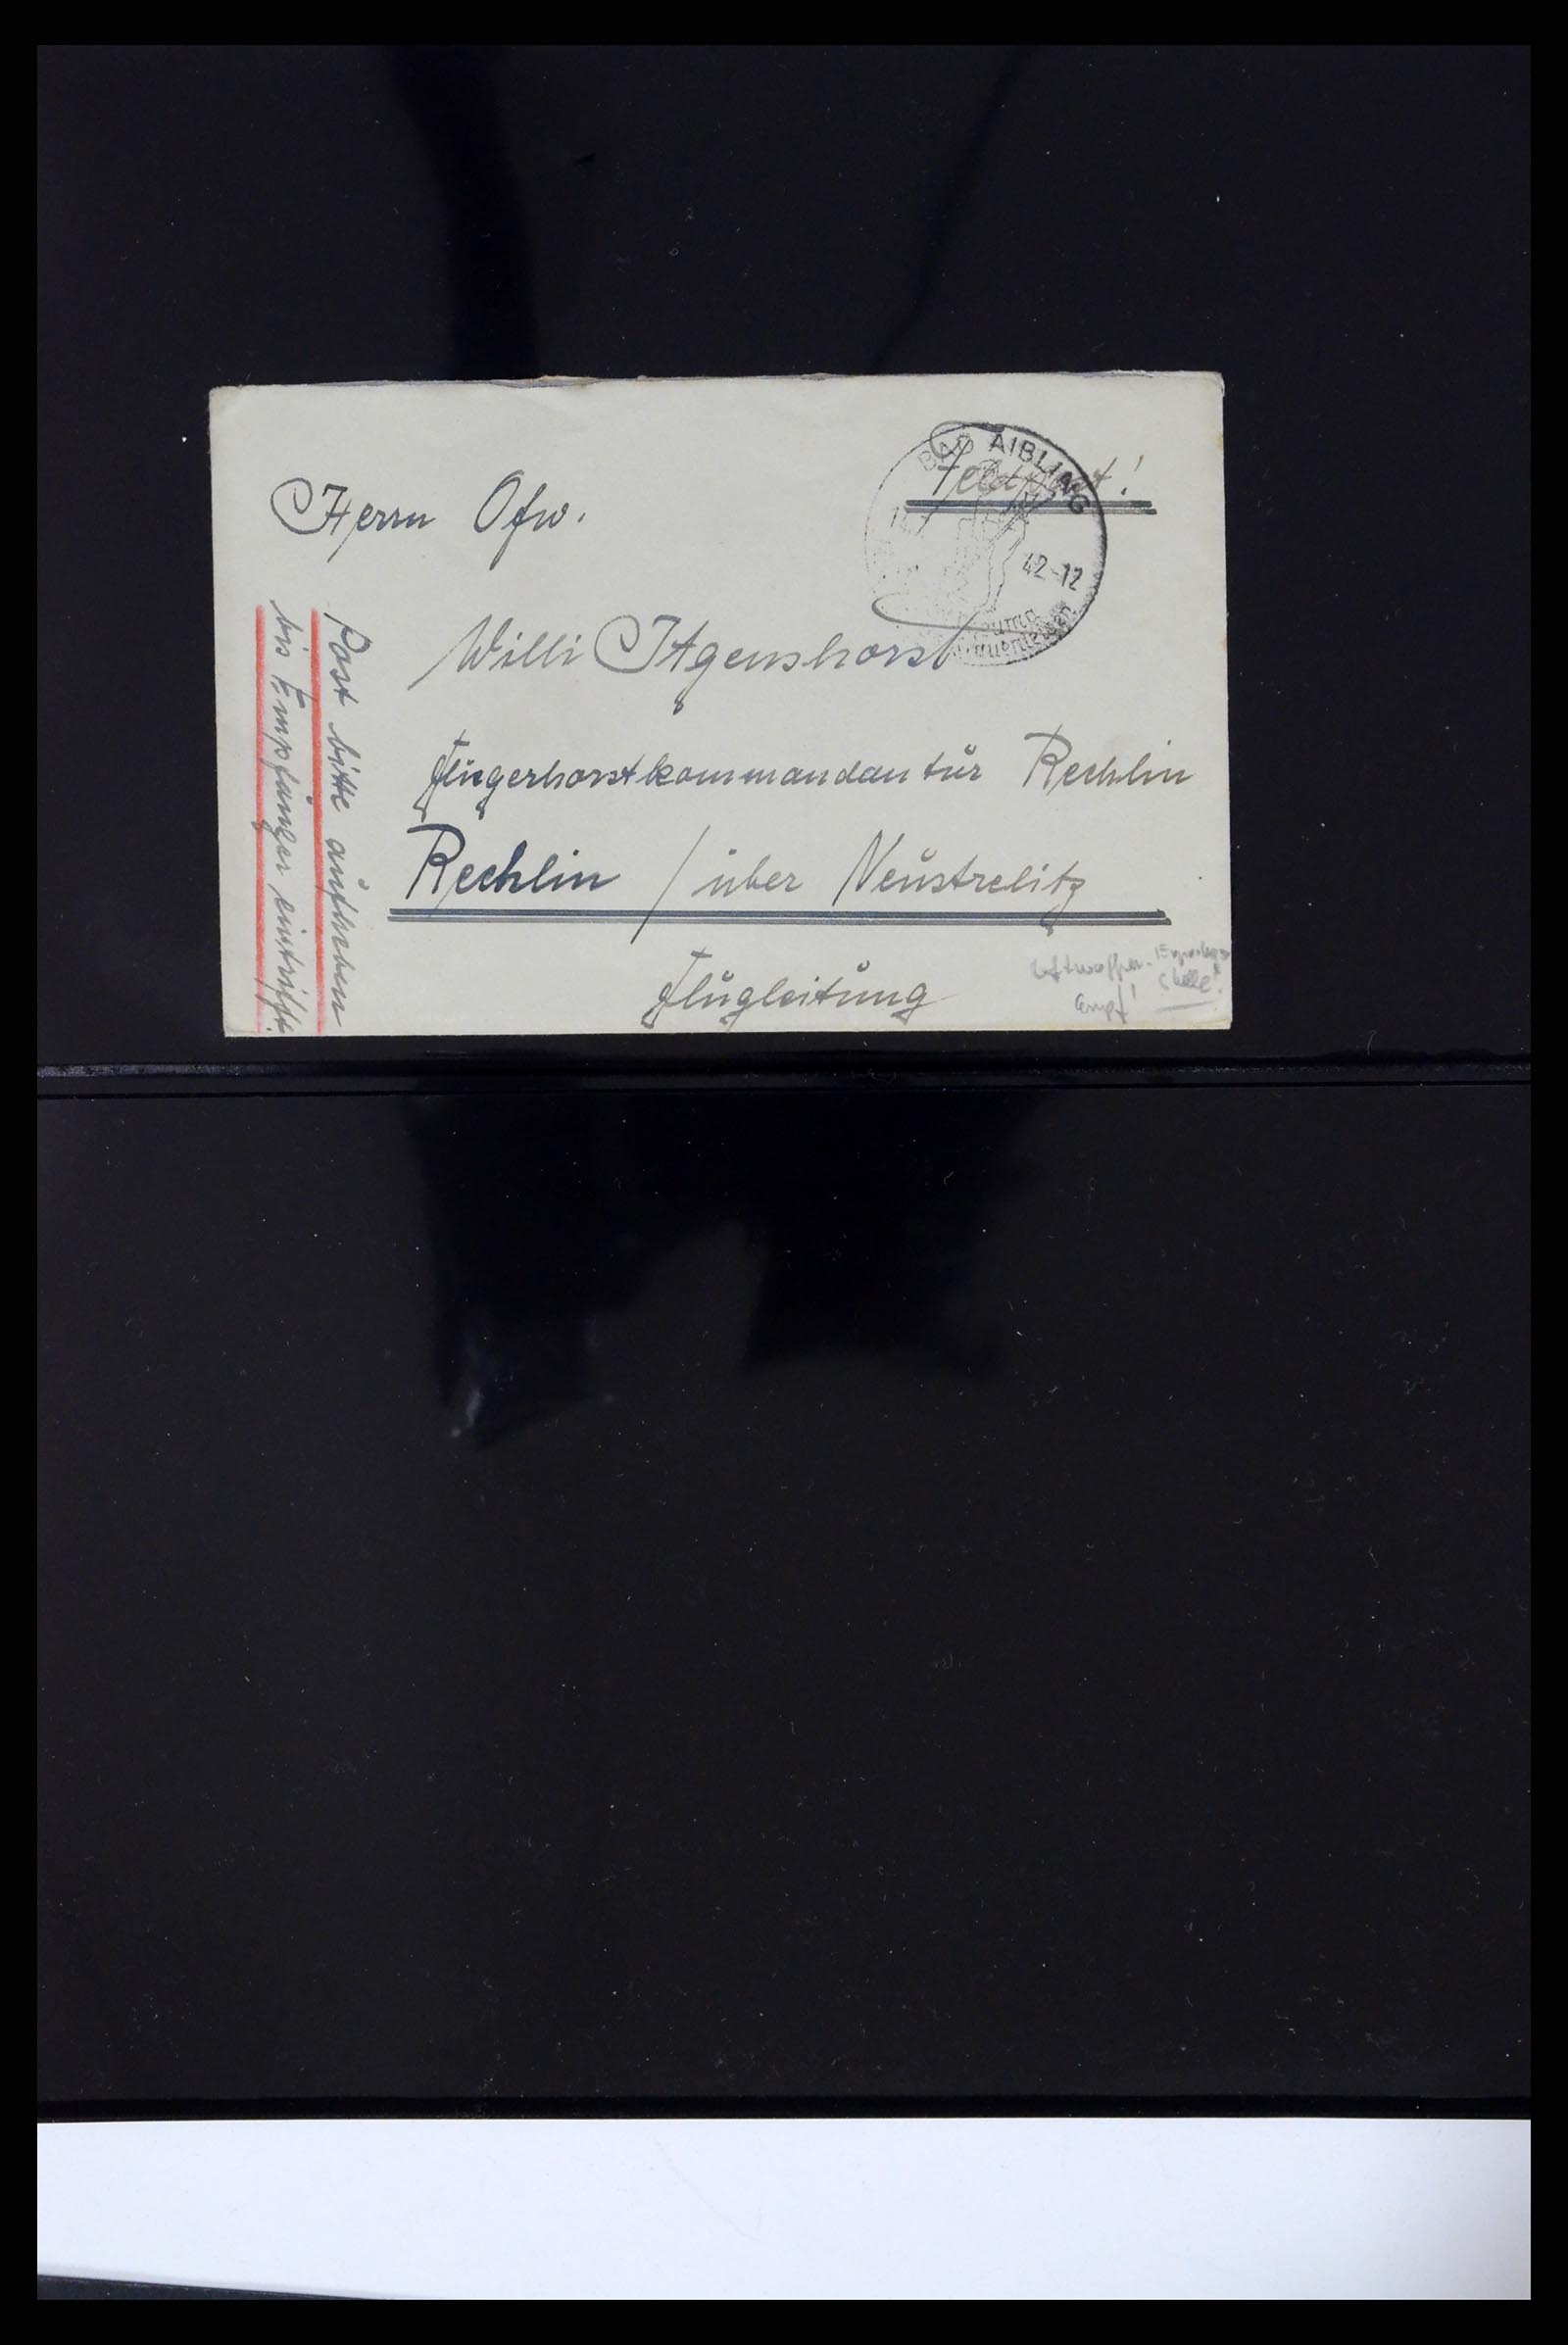 Feldpost!
BAD AIBLING
42-12
Herrn Ofw.
Willi Hagenshorst
Fliegerhorstkommandantur Rechlin
Rechlin / über Neustrelitz
Flugleitung
Post bitte aufheben
bis Empfänger eintrifft.
Luftwaffen-
Stelle!